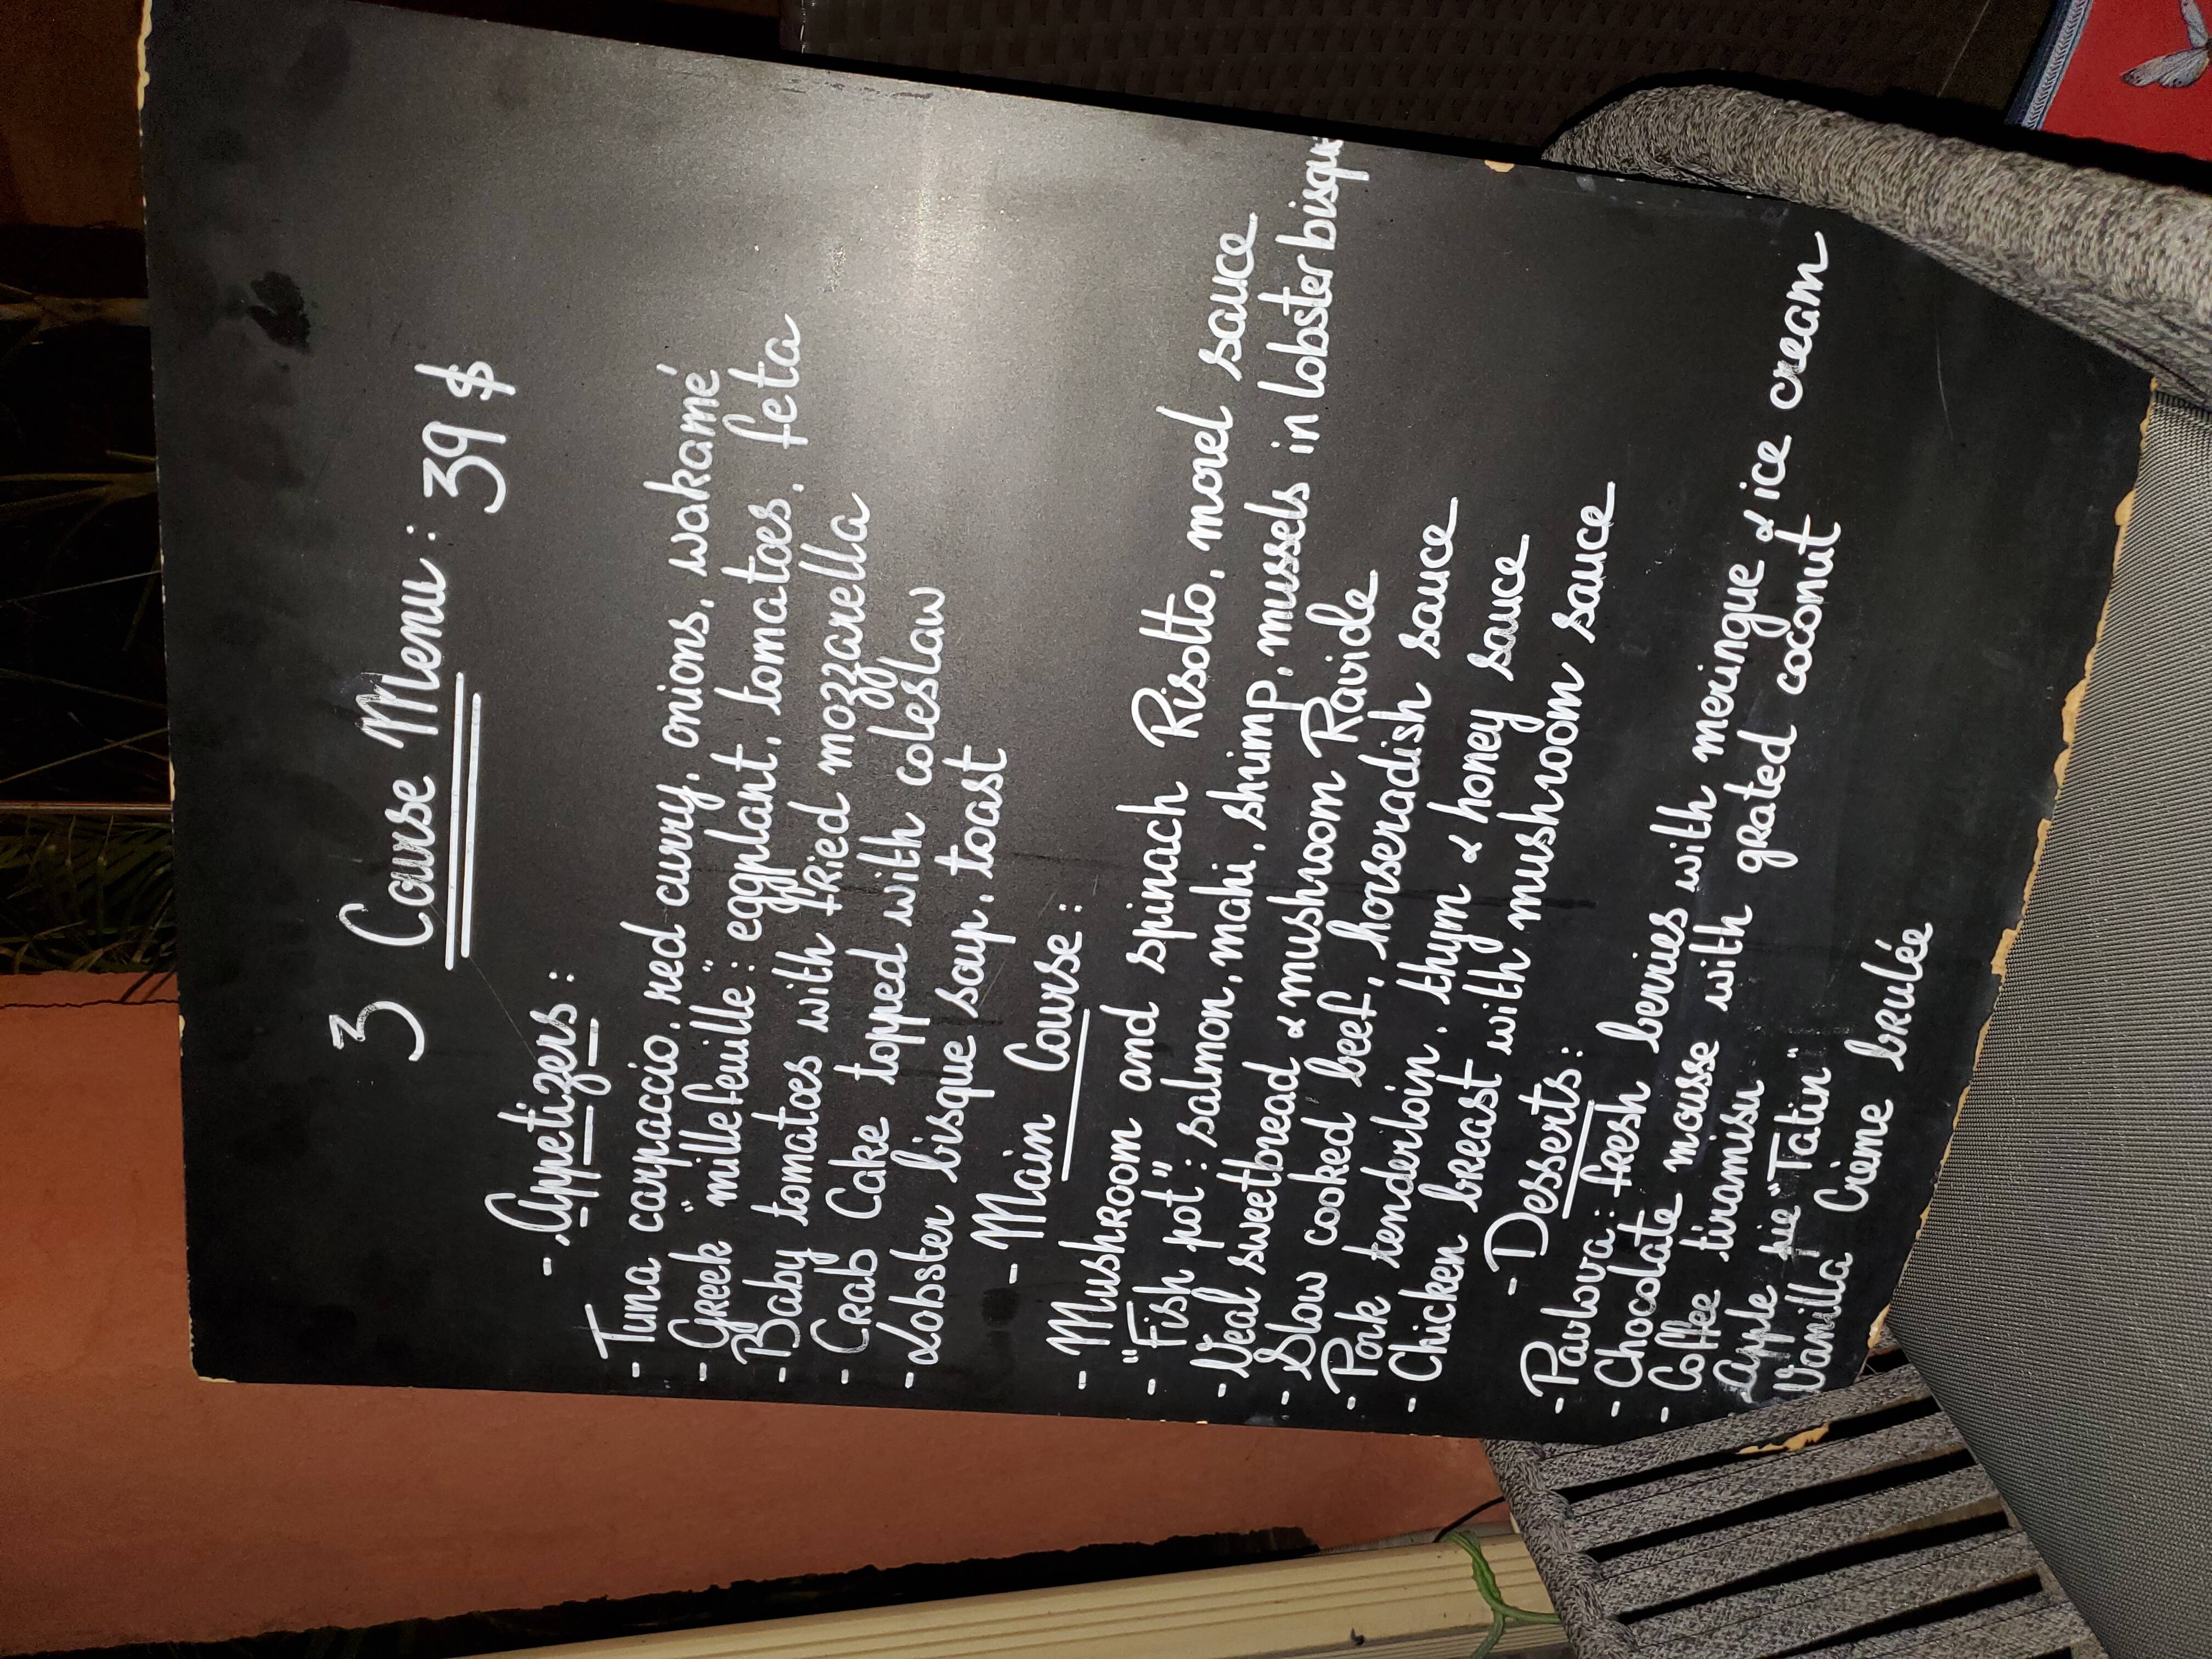 3 Course Menu : 39 $
- Appetizers :
- Tuna carpaccio, red curry, onions, wakamé
- Greek "millefeuille" : eggplant, tomatoes, feta
- Baby tomatoes with fried mozzarella
- Crab Cake topped with coleslaw
- Lobster bisque soup, toast
- Main Course :
- Mushroom and spinach Risotto, morel sauce
- "Fish pot" : salmon, mahi, shrimp, mussels in lobster bisque
- Veal sweetbread & mushroom Raviole
- Slow cooked beef, horseradish sauce
- Pork tenderloin, thym & honey sauce
- Chicken breast with mushroom sauce
- Desserts :
- Pavlova : fresh berries with meringue & ice cream
- Chocolate mousse with grated coconut
- Coffee tiramisu
Apple pie "Tatin"
Vanilla Crème brulée